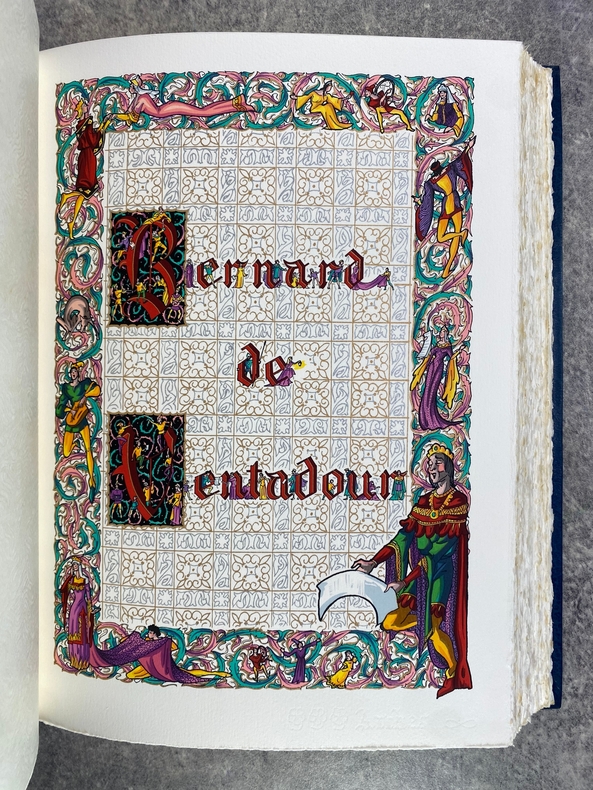 Bernard
de
Ventadour